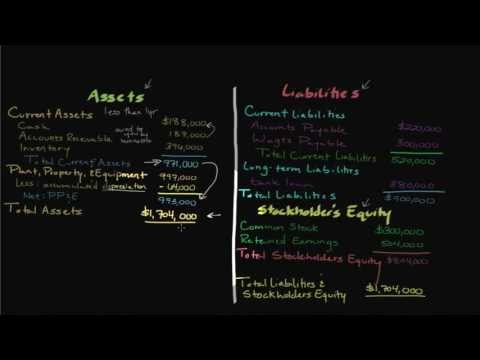 Assets
Current Assets less than 1yr
Cash $188,000
Accounts Receivable owed to you by customers 189,000
Inventory 394,000
Total Current Assets 771,000
Plant, Property, & Equipment 997,000
Less: accumulated depreciation - 64,000
Net: PP&E 933,000
Total Assets $1,704,000
Liabilities
Current Liabilities
Accounts Payable $220,000
Wages Payable 300,000
Total Current Liabilities 520,000
Long-term Liabilities
bank loan 380,000
Total Liabilities $900,000
Stockholder's Equity
Common Stock $300,000
Retained Earnings 504,000
Total Stockholders Equity $804,000
Total Liabilities &
Stockholders Equity $1,704,000